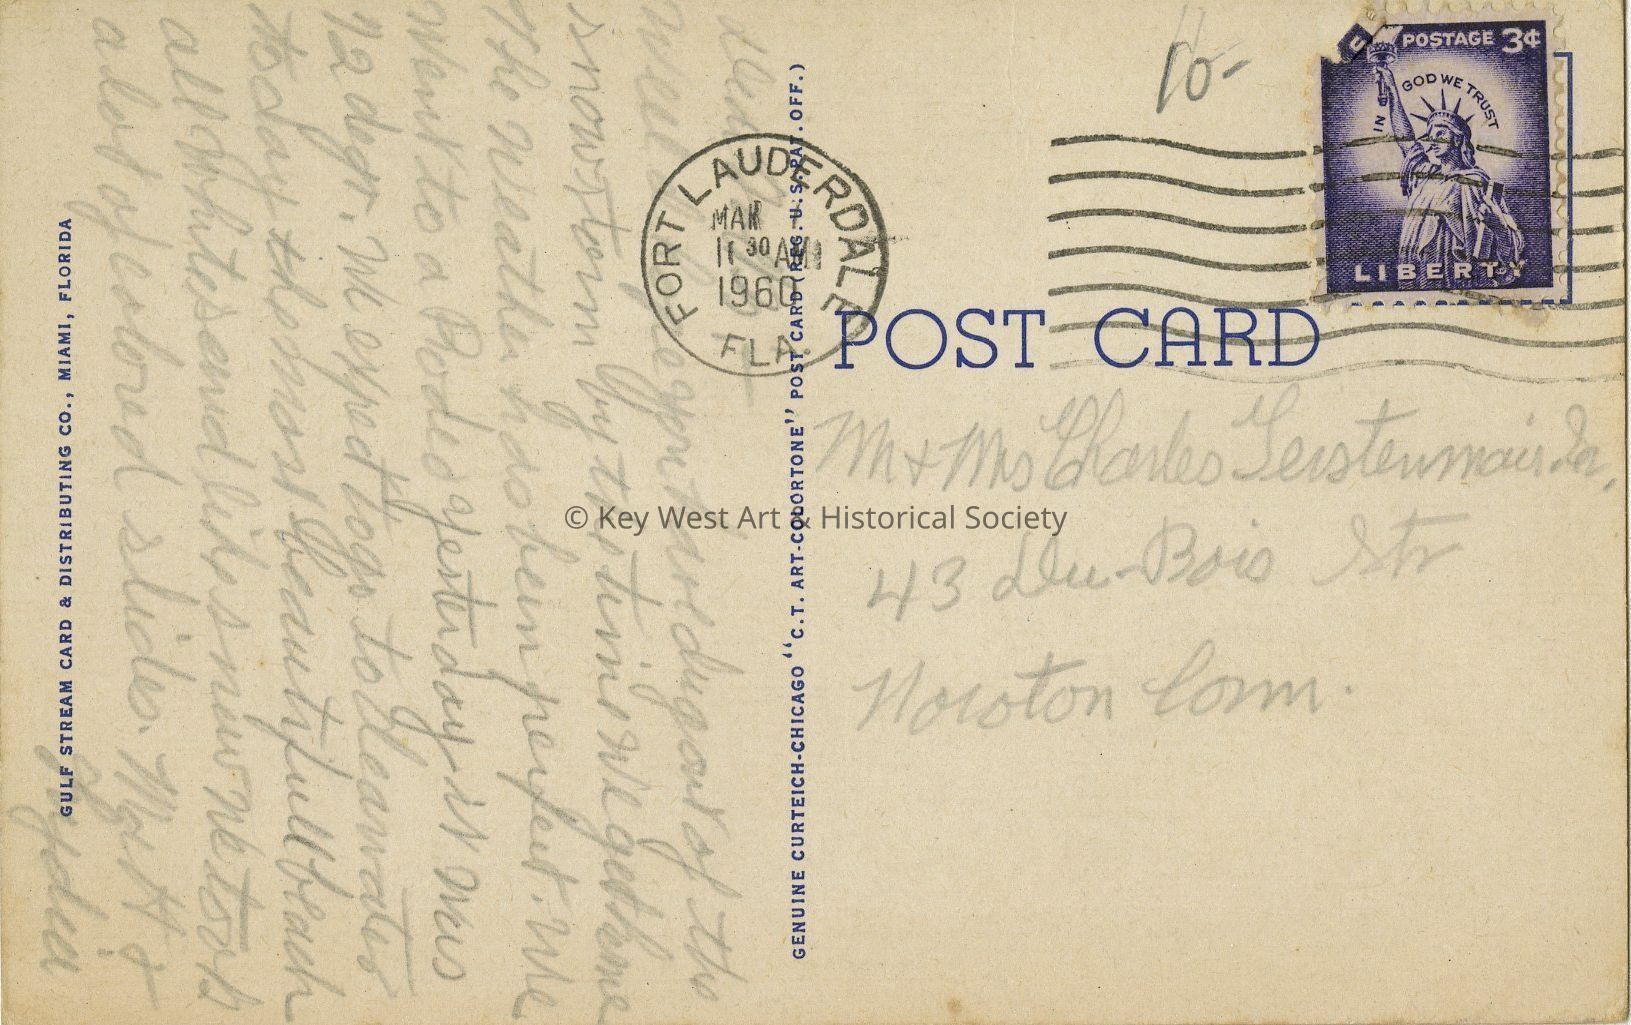 POSTAGE 3¢
IN GOD WE TRUST
LIBERTY
10-
FORT LAUDERDALE
MAR
11 30 AM
1960
FLA.
POST CARD
Mr + Mrs Charles Geistenmair Jr,
43 Du-Bois Str
Noroton Conn.
© Key West Art & Historical Society
GENUINE CURTEICH-CHICAGO "C.T. ART-COLORTONE" POST CARD (REG. U.S. PAT. OFF.)
will be good part of the
snowstorm by the time we get home
The weather has been perfect. We
went to a Rodeo yesterday it was
72 degr. We expect to go to Clearwater
today the most beautiful beach
all white sand like snow. We took
a lot of colored slides. Mort &
Lydia
GULF STREAM CARD & DISTRIBUTING CO., MIAMI, FLORIDA